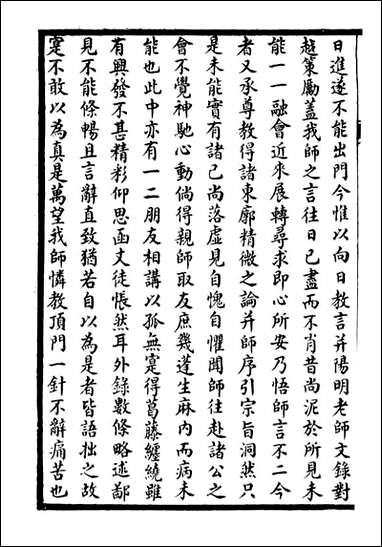 日進遂不能出門今惟以向日教言并陽明老師文錄對
越策勵蓋我師之言往日已盡而不肖昔尚泥於所見未
能一一融會近來展轉尋求即心所安乃悟師言不二今
者又承尊教得諸東廓精微之論并師序引宗旨洞然只
是未能實有諸己尚落虛見自愧自懼聞師往赴諸公之
會不覺神馳心動倘得親師取友庶幾蓬生麻內而病未
能也此中亦有一二朋友相講以孤無寔得葛藤纏繞雖
有興發不甚精彩仰思函丈徒悵然耳外錄數條略述鄙
見不能條暢且言辭直致猶若自以為是者皆語拙之故
寔不敢以為真是萬望我師憐教頂門一針不辭痛苦也